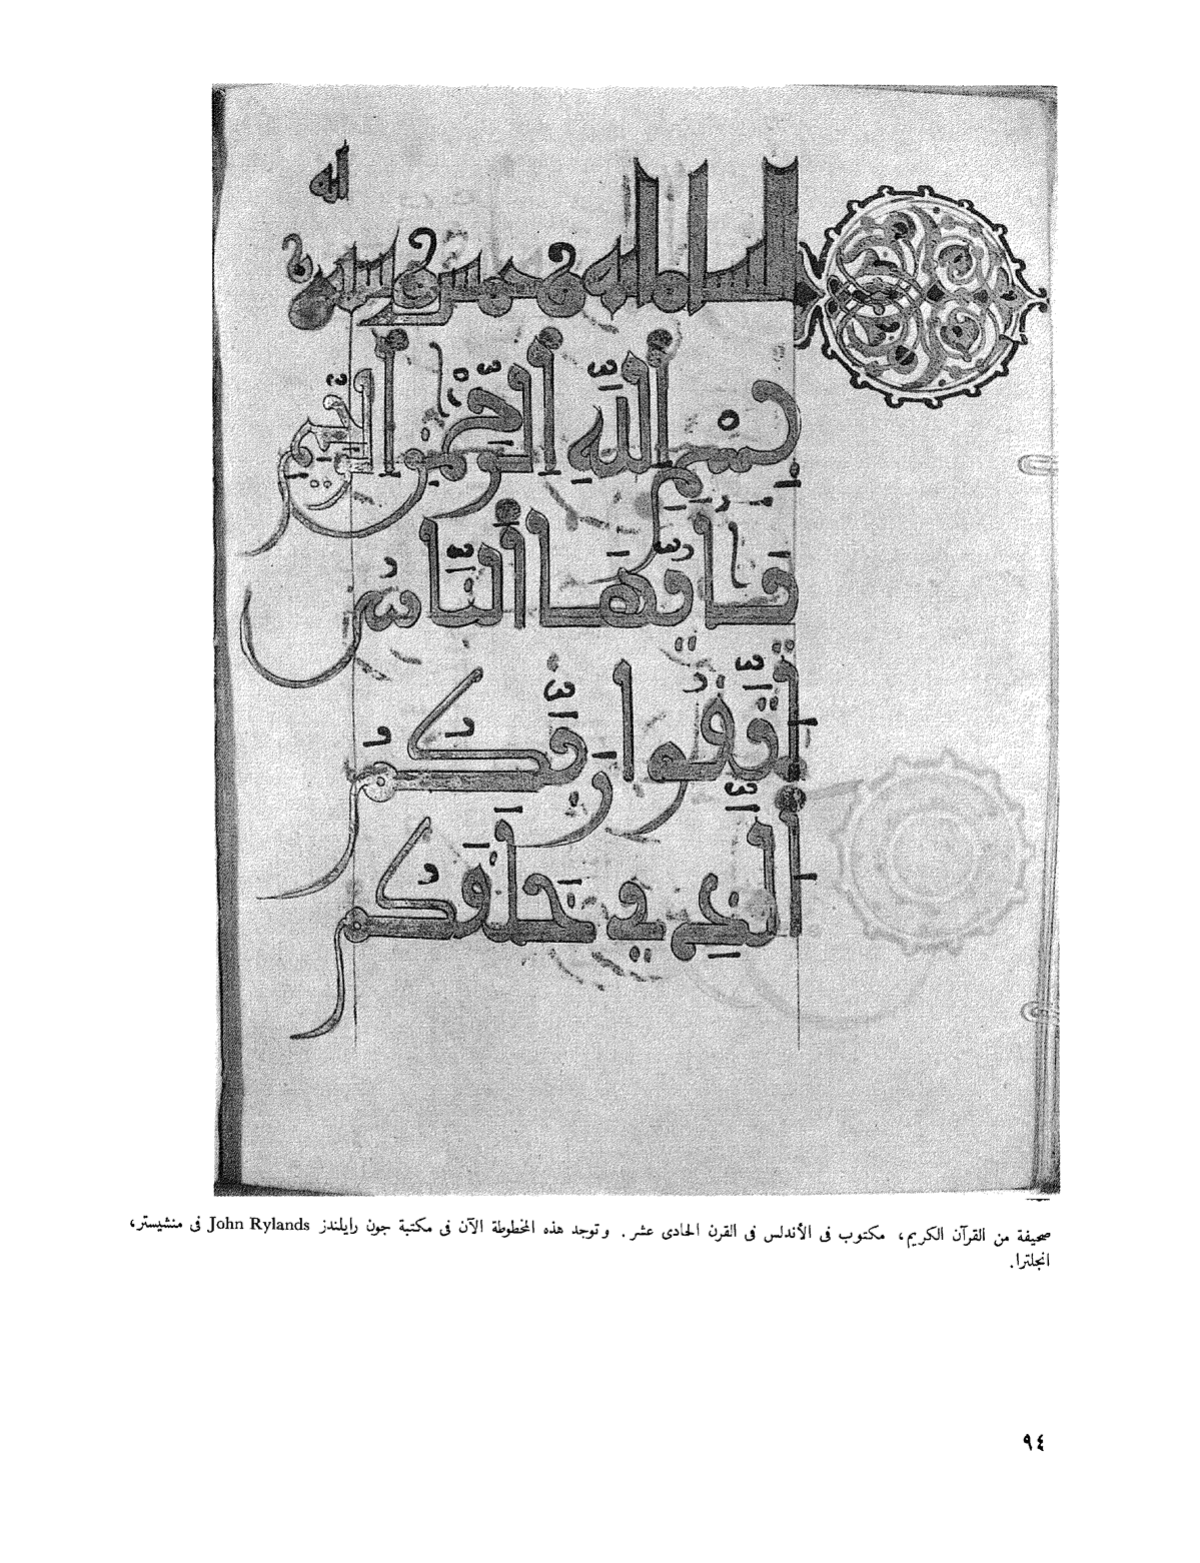 بِسْمِ اللَّهِ الرَّحْمَٰنِ الرَّحِيمِ
يَٰأَيُّهَا النَّاسُ
اتَّقُوا رَبَّكُمُ
الَّذِي خَلَقَكُمْ
صحيفة من القرآن الكريم، مكتوب فى الأندلس فى القرن الحادى عشر. وتوجد هذه المخطوطة الآن فى مكتبة جون رايلندز John Rylands فى منشيستر،
انجلترا.
٩٤